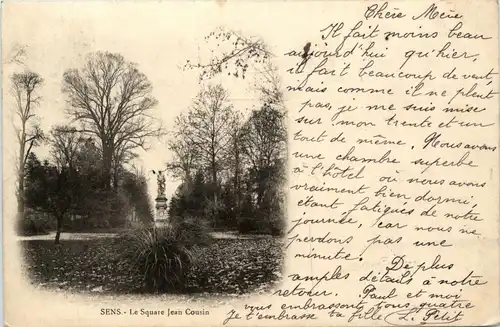 Chère Mère
Il fait moins beau
aujourd'hui qu'hier,
il fait beaucoup de vent
mais comme il ne pleut
pas, je me suis mise
sur mon trente et un
tout de même. Nous avons
une chambre superbe
à l'hôtel où nous avons
vraiment bien dormi,
étant fatiguées de notre
journée, car nous ne
perdons pas une
minute. De plus
amples détails à notre
retour. Paul et moi
vous embrassons tous quatre
Je t'embrasse ta fille L. Petit
SENS. - Le Square Jean Cousin